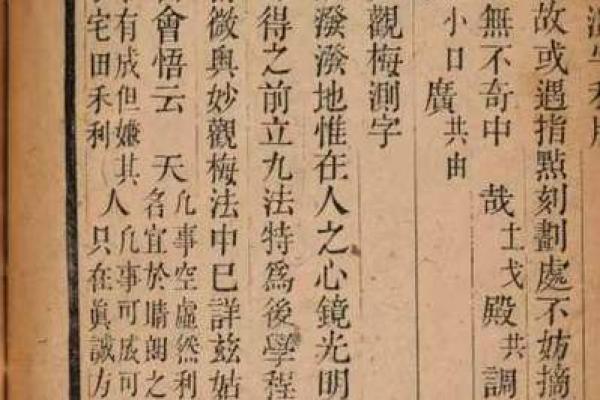 故或遇指點刻劃處不妨摘
無不奇中 哉土戈殿共調
小日廣共由
觀梅測字
潑潑地惟在人之心鏡光明
得之前立九法特為後學程
微與妙觀梅法中巳詳茲姑
會悟云 天凡事空虛然利名宜於晴朗之
有成但嫌其人凡事可成可
宅田禾利 只在眞誠方